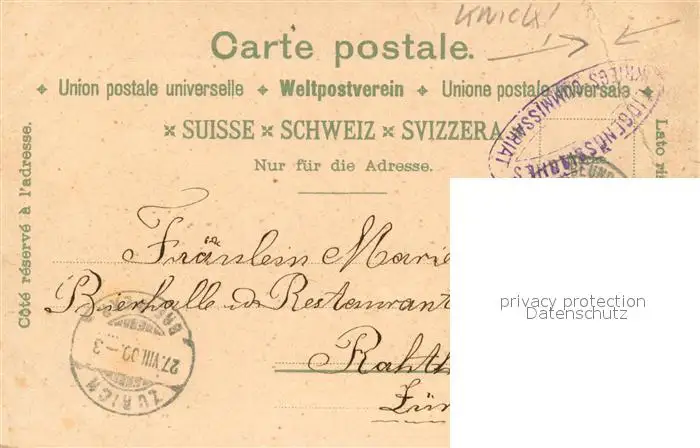 KNICK!
Carte postale.
Union postale universelle + Weltpostverein + Unione postale universale
SUISSE × SCHWEIZ × SVIZZERA
Nur für die Adresse.
Côté réservé à l'adresse.
Lato ri
EIDGENÖSSISCHES
KRIEGS-COMMISSARIAT
Fräulein Marie
Bierhalle & Restaurant
Rahth
Zür
ZÜRICH
27.VIII.09.-3
privacy protection
Datenschutz